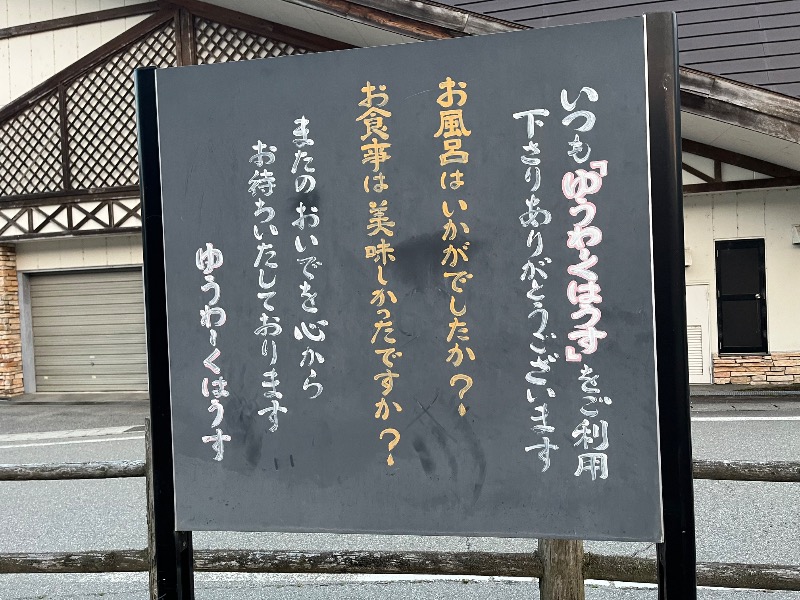 いつも『ゆうわ〜くはうす』をご利用
下さりありがとうございます
お風呂はいかがでしたか?
お食事は美味しかったですか?
またのおいでを心から
お待ちいたしております
ゆうわ〜くはうす